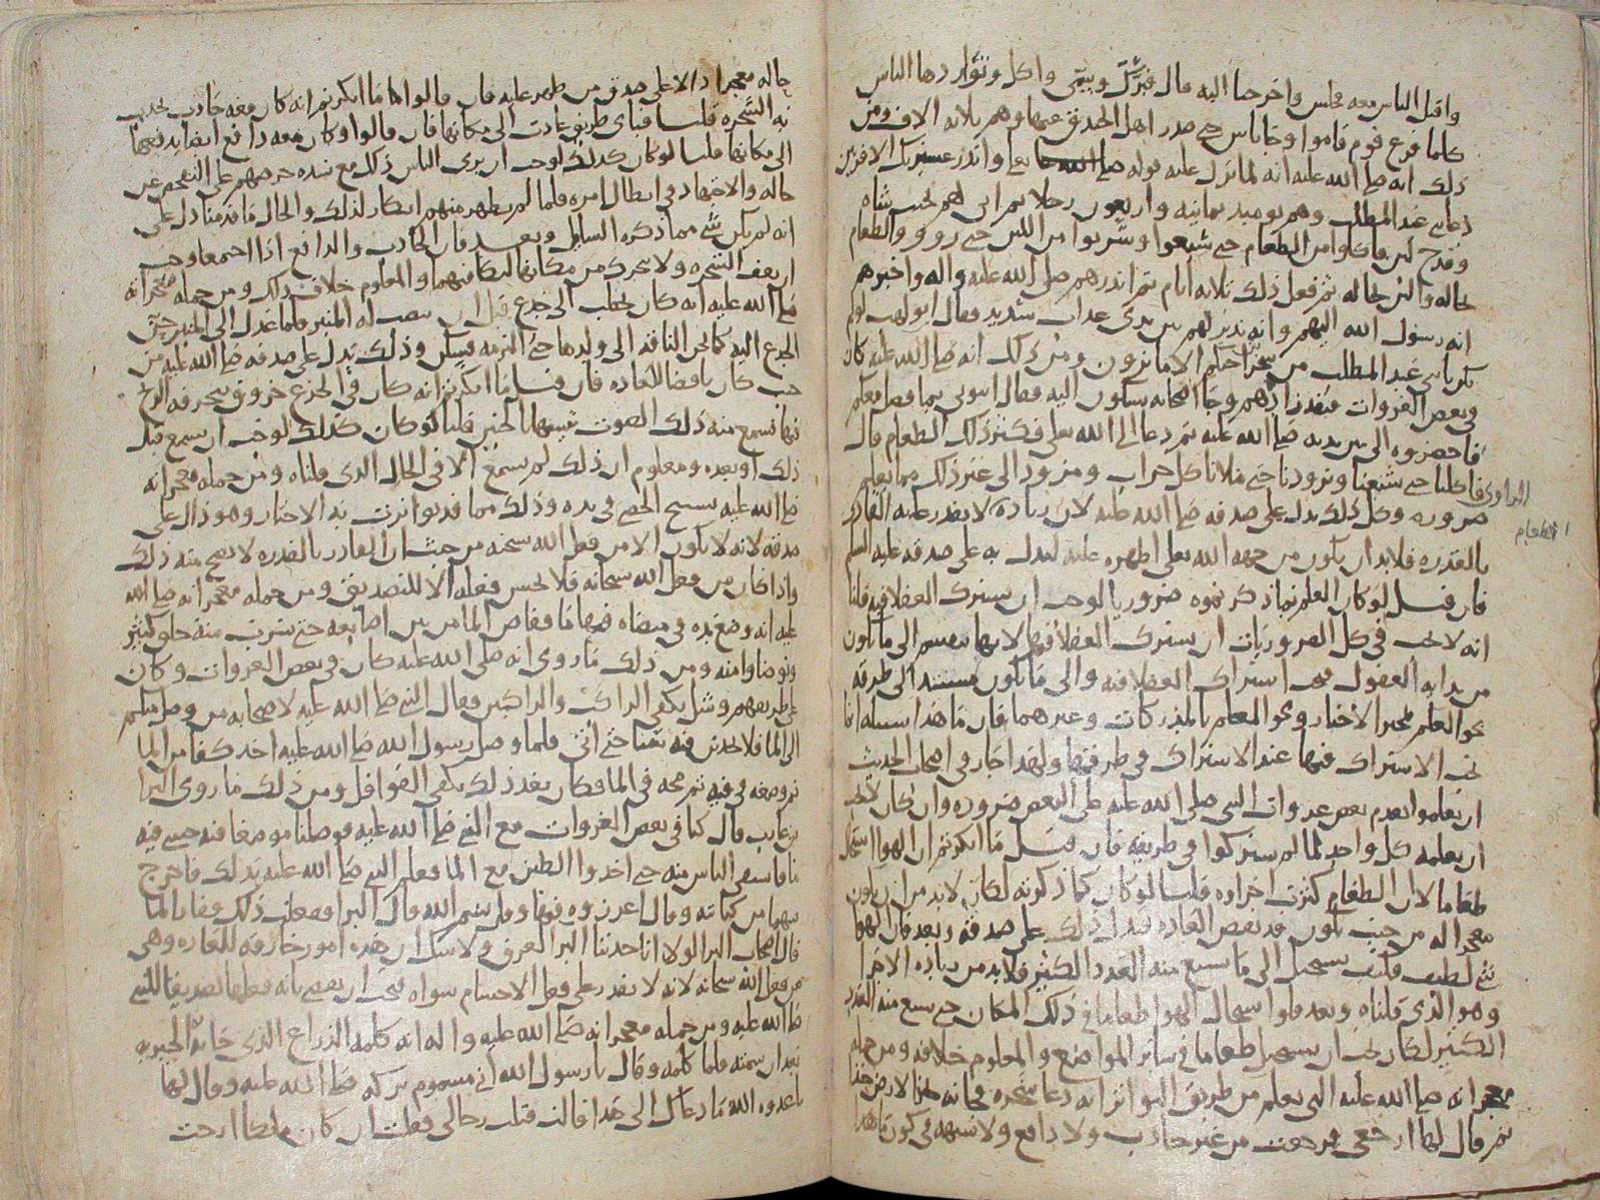 واقبل الناس معه فجلس واخرجنا اليه قال فبرك وسمى واكل وتواردها الناس
كلما فرغ قوم قاموا وجا ناس حتى صدر اهل الخندق عنها وهم ثلاثة الاف ومن
ذلك انه صلى الله عليه انه لما نزل عليه قوله تعلى وانذر عشيرتك الاقربين
دعا بنى عبد المطلب وهم يوميذ ثمانيه واربعون رجلا ثم اتى لهم بجنب شاه
وقدح لبن فاكلوا من الطعام حتى شبعوا وشربوا من اللبن حتى رووا والطعام
بحاله واللبن بحاله ثم فعل ذلك ثلاثة ايام ثم انذرهم صلى الله عليه واله واخبرهم
انه رسول الله اليهم وانه نذير لهم بين يدى عذاب شديد فقال ابو لهب لولم
يكن يا بنى عبد المطلب من سحر صاحبكم الا ما ترون ومن ذلك انه صلى الله عليه كان
فى بعض الغزوات فنفد زادهم وجا اصحابه يشكون اليه فقال ايتونى بما فضل معكم
فاحضروه الى بين يديه صلى الله عليه ثم دعا الى الله تعلى فكثر ذلك الطعام قال
الراوى فاكلنا حتى شبعنا وتزودنا حتى ملانا كل جراب ومزود الى غير ذلك مما يعلم
ضروره وكل ذلك يدل على صدقه صلى الله عليه لان زيادة الطعام لا يقدر عليه القادر
بالقدره فلا بد ان يكون من جهة الله تعلى اظهره عليه ليدل به على صدقه عليه السلم
فان قيل لو كان العلم بما ذكرتموه ضروريا لوجب ان يشترك العقلا فيه قلنا
انه لا يجب فى كل الضروريات ان يشترك العقلا فيها لانها تنقسم الى ما يكون
من بدايه العقول فيجب اشتراك العقلا فيه والى ما يكون مستندا الى طريقه
نحو العلم بمخبر الاخبار ونحو العلم بالمدركات وغيرهما فان ما هذا سبيله انما
يجب الاشتراك فيها عند الاشتراك فى طريقها ولهذا جاز فى اصحاب الحديث
ان يعلموا تقدم بعض غزوات النبى صلى الله عليه على البعض ضروره وان كان لا يجب
ان يعلمه كل واحد لما لم يشتركوا فى طريقه فان قيل ما انكرتم ان الهوا استحال
طعاما لا ان الطعام كثرت اجزاوه قلنا لو كان كما ذكرته لكان لا بد من ان يكون
معجزا له من حيث يكون قد نقض العاده فيدل ذلك على صدقه وبعد فان الهوا
شى لطيف فكيف يستحيل الى ما يشبع منه العدد الكثير فلا بد من زيادة الاجزا
وهو الذى قلناه وبعد فلو استحال الهوا طعاما فى ذلك المكان حتى يشبع منه العدد
الكثير لكان يجب ان يستحيل طعاما فى ساير المواضع والمعلوم خلافه ومن جمله
معجزاته صلى الله عليه التى تعلم من طريق التواتر انه دعا شجره فجاته تخد الارض خدا
ثم قال لها ارجعى فرجعت من غير جاذب ولا دافع ولا شبهه فى كون ما هذا
حاله معجزا دالا على صدق من ظهر عليه فان قالوا ما انكرتم انه كان معه جاذب يجذب
به الشجره قلنا فباى طريق عادت الى مكانها فان قالوا وكان معه دافع ايضا يدفعها
الى مكانها قلنا لو كان كذلك لوجب ان يرى الناس ذلك مع شده حرصهم على التفحص عن
حاله والاجتهاد فى ابطال امره فلما لم يظهر منهم انكار لذلك والحال ما قدمنا دل على
انه لم يكن شى مما ذكره السايل وبعد فان الجاذب والدافع اذا اجتمعا وجب
ان يقف الشجره ولا يتحرك من مكانها لتكافيهما والمعلوم خلاف ذلك ومن جمله معجزاته
صلى الله عليه انه كان يخطب الى جذع قبل ان ينصب له المنبر فلما عدل الى المنبر حن
الجذع اليه كما تحن الناقه الى ولدها حتى التزمه فسكن وذلك يدل على صدقه صلى الله عليه من
حيث كان ناقضا للعاده فان قيل ما انكرتم انه كان فى الجذع خروق تتخرقه الريح
فيها فسمع منه ذلك الصوت شبيها بالحنين قلنا لو كان كذلك لوجب ان يسمع قبل
ذلك او بعده ومعلوم ان ذلك لم يسمع الا فى الحال الذى قلناه ومن جمله معجزاته
صلى الله عليه تسبيح الحصى فى يده وذلك مما قد تواترت به الاخبار وهو دال على
صدقه لانه لا يكون الا من فعل الله سبحنه من حيث ان القادر بالقدره لا يصح منه ذلك
واذا كان من فعل الله سبحانه فلا يحسن فعله الا للتصديق ومن جمله معجزاته صلى الله
عليه انه وضع يده فى ميضاه فيها ما ففاض الما من بين اصابعه حتى شرب منه خلق كثير
وتوضاوا منه ومن ذلك ما روى انه صلى الله عليه كان فى بعض الغزوات وكان
على طريقهم وشل يكفى الراكب والراكبين فقال النبى صلى الله عليه لاصحابه من وصل منكم
الى الما فلا يحدث فيه شيا حتى اتى فلما وصل رسول الله صلى الله عليه اخذ كفا من الما
ثم وضعه فى فيه ثم مجه فى الما فكان بعد ذلك يكفى القوافل ومن ذلك ما روى البرا
بن عازب قال كنا فى بعض الغزوات مع النبى صلى الله عليه فوصلنا موضعا فيه حسى فيه
ما فاستقى الناس منه حتى اخذوا الطين مع الما فعلم النبى صلى الله عليه بذلك فاخرج
سهما من كنانته وقال اغرزوه فيها وقل بسم الله قال البرا ففعلت ذلك ففار الما
قال اصحاب البرا لولا انا جذبنا البرا لغرق ولا شك ان هذه امور خارقه للعاده وهى
من فعل الله سبحانه لانه لا يقدر على فعل الاجسام سواه فيجب ان يقضى بانه فعلها تصديقا للنبى
صلى الله عليه ومن جمله معجزاته صلى الله عليه واله انه كلمه الذراع الذى جاته الخيبريه
بعد ان سمته فلما كلمه وقال يا رسول الله انى مسموم تركه صلى الله عليه وقال لها
يا عدوه الله ما دعاك الى هذا قالت قتلت رجالى فقلت ان كان ملكا ارحت